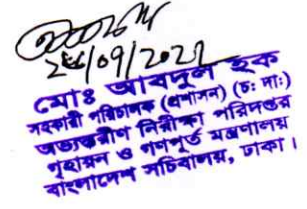 ২৮/০৭/২০২১
মোঃ আবদুল হক
সহকারী পরিচালক (প্রশাসন) (চঃ দাঃ)
অভ্যন্তরীণ নিরীক্ষা পরিদপ্তর
গৃহায়ন ও গণপূর্ত মন্ত্রণালয়
বাংলাদেশ সচিবালয়, ঢাকা।